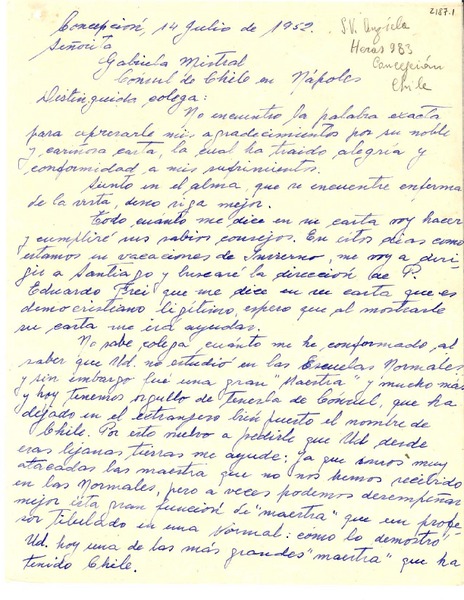 2187.1
Concepción, 14 Julio de 1952.
Señorita
Gabriela Mistral
Cónsul de Chile en Nápoles
Heras 983
Concepción
Chile
Distinguida colega:
No encuentro la palabra exacta
para expresarle mis agradecimientos por su noble
y cariñosa carta, la cual ha traido alegría y
conformidad a mis sufrimientos.
Siento en el alma, que se encuentre enferma
de la vista, deseo siga mejor.
Todo cuánto me dice en su carta voy hacer
y cumpliré sus sabios consejos. En estos días como
estamos en vacaciones de Invierno, me voy a diri-
gir a Santiago y buscaré la dirección de P.
Eduardo Frei que me dice en su carta que es
democristiano legítimo, espero que al mostrarle
su carta me irá ayudar.
No sabe colega, cuánto me he conformado, al
saber que Ud. no estudió en las Escuelas Normales
y sin embargo fué una gran "Maestra" y mucho más
y hoy tenemos orgullo de tenerla de Consul, que ha
dejado en el extranjero bien puesto el nombre de
Chile. Por esto vuelvo a pedirle que Ud. desde
esas lejanas tierras me ayude: ya que somos muy
atacadas las maestra que no nos hemos recibido
en las Normales, pero a veces podemos desempeñar
mejor esta gran función de "maestra" que un profe-
sor titulado en una Normal: como lo demostró
Ud. hoy una de las más grandes "maestra" que ha
tenido Chile.